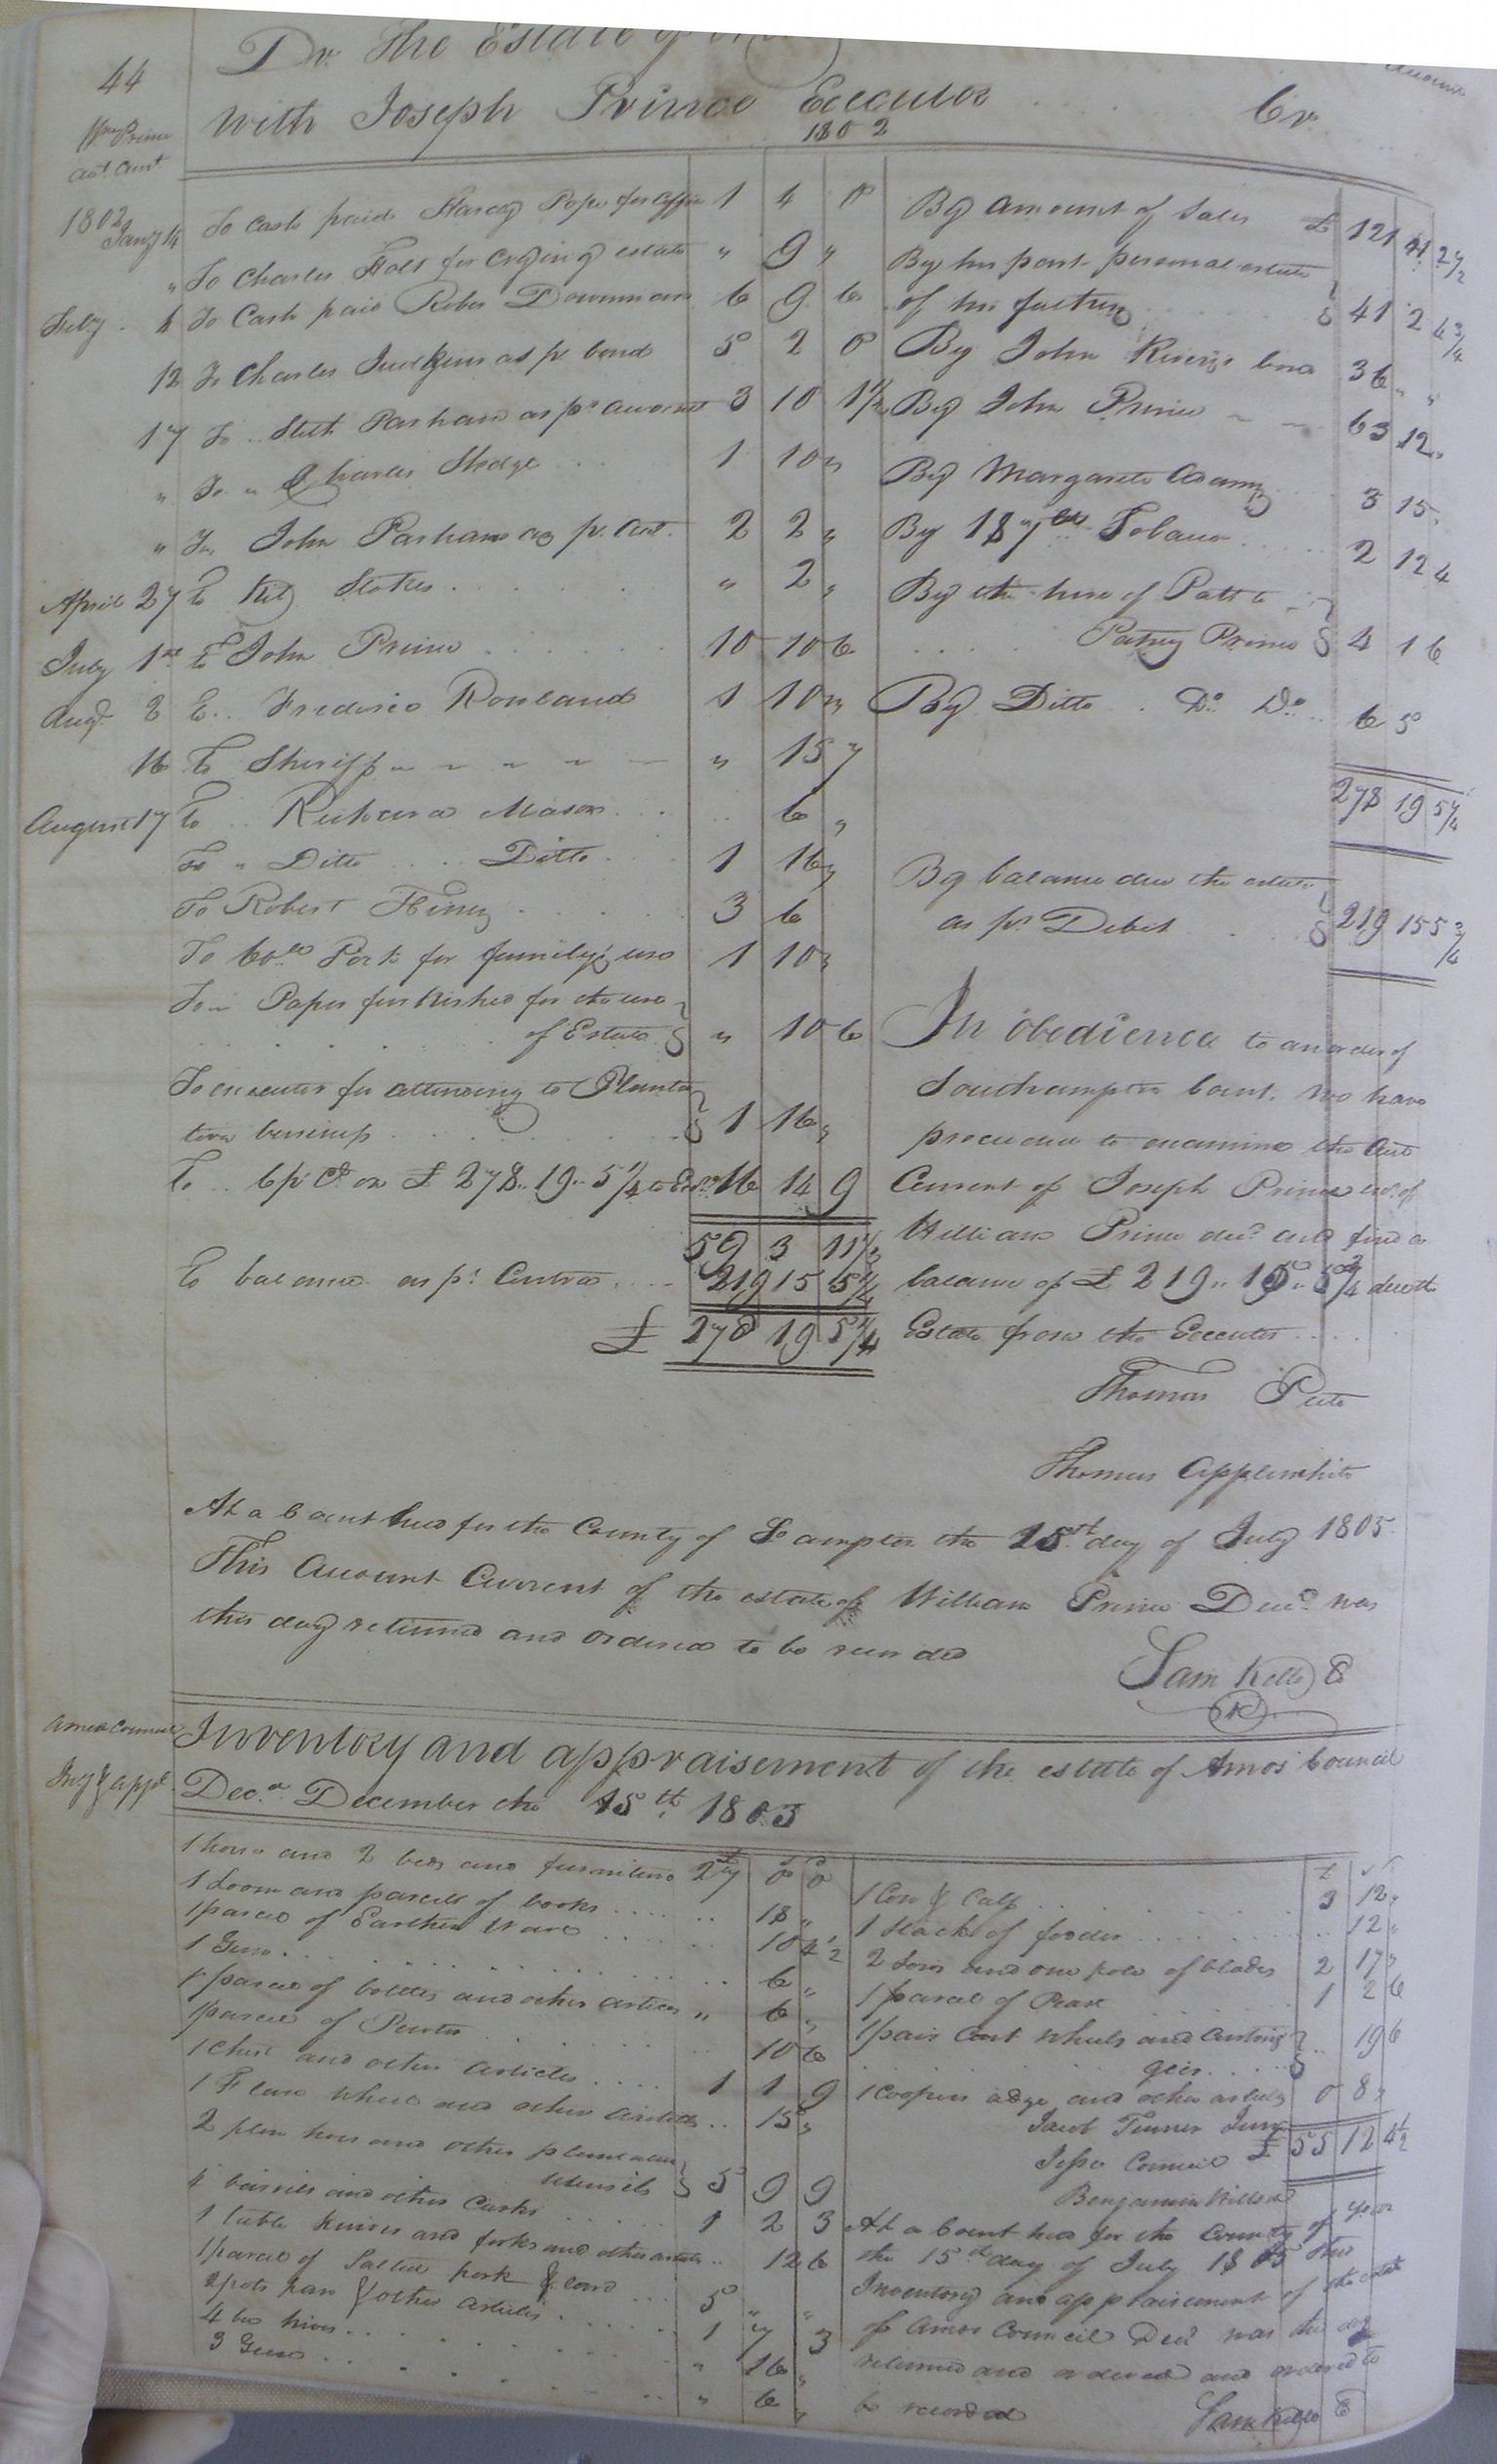 44
Dr. The Estate of
With Joseph Prince Executor Cr.
1802
Wm Prince
Act Curt
1802
Jany 14 To Cash paid Harvey Pope for 1 4 0
" To Charles Holt for Crying estate " 9 "
July 6 To Cash paid Robt Downman 6 9 6
12 To Charles Judkins as pr bond 5 2 0
17 To .. Steth Parham as pr account 3 10 1½
" To " Charles Sledge 1 10 "
" To John Parham as pr. Act. 2 2 "
April 27 To Stokes " 2 "
July 1st To John Prince 10 10 6
Augt 3 To .. Frederic Rowland 1 10 "
16 To Sheriff " 15 7
August 17 To .. Richard Mason .. 6 "
To " Ditto Ditto 1 16 "
To Robert 3 6
To 60lb Pork for family's use 1 10 "
To Paper furnished for the use
of Estate " 10 6
To executor for attending to Planta
tion business 1 16 "
To .. 6 pr Ct on £ 278 .. 19 .. 5¼ to Exr 16 14 9
59 3 11½
To balance as pr Contra 219 15 5¼
£ 278 19 5¼
By amount of Sales £ 121 11 2½
By his part personal estate
of his father 41 2 6¾
By John bond 36 " "
By John Prince 63 12 "
By Margaret Adams 3 15 "
By 187lb Tobacco 2 12 4
By the hire of Patt to
Patsey Prince 4 1 6
By Ditto . Do Do 6 5
278 19 5¼
By balance due the estate
as pr Debit 219 15 5¾
In obedience to an order of
Southampton Court. We have
proceeded to examine the Act
Current of Joseph Prince exr of
William Prince decd and find a
balance of £ 219 .. 15 .. 5¾ due the
Estate from the Executor
Thomas Pete
Thomas Applewhite
At a Court held for the County of So ampton the 15th day of July 1805.
This Account Current of the estate of William Prince Decd was
this day returned and ordered to be recorded
Sam Kello C
Amos Council
Iny & appt
Inventory and appraisement of the estate of Amos Council
Decd December the 15th 1803
1 horse and 2 beds and furniture 27 0 0
1 Loom and parcell of books 18 "
1 parcel of Earthen Ware 10 4½
1 Gun 6 "
1 parcel of bottles and other articles " 6 "
1 parcel of Pewter 10 6
1 Chest and other Articles 1 1 9
1 Flax Wheel and other Articles 15 "
2 plow hoes and other plantation
utensils 5 9 9
4 barriels and other Casks 1 2 3
1 table knives and forks and other articles 12 6
1 parcel of Salted pork & lard 5 " "
2 pots pan & other articles 1 7 3
4 bee hives " 16 "
3 Geese " 6 "
£ s d
1 Cow & Calf 3 12 "
1 Stack of fooder 12 "
2 Sows and one pole of blades 2 17 "
1 parcel of Pease 1 2 6
1 pair Cart Wheels and Carting
geer 19 6
1 Coopers adge and other articles 0 8 "
Jacob Turner Junr £ 55 12 4½
Jesse Council
Benjamin
At a Court held for the County of
the 15th day of July 1805 this
Inventory and appraisement of the estate
of Amos Council Decd was this day
returned and ordered and ordered to
be recorded
Sam Kello C